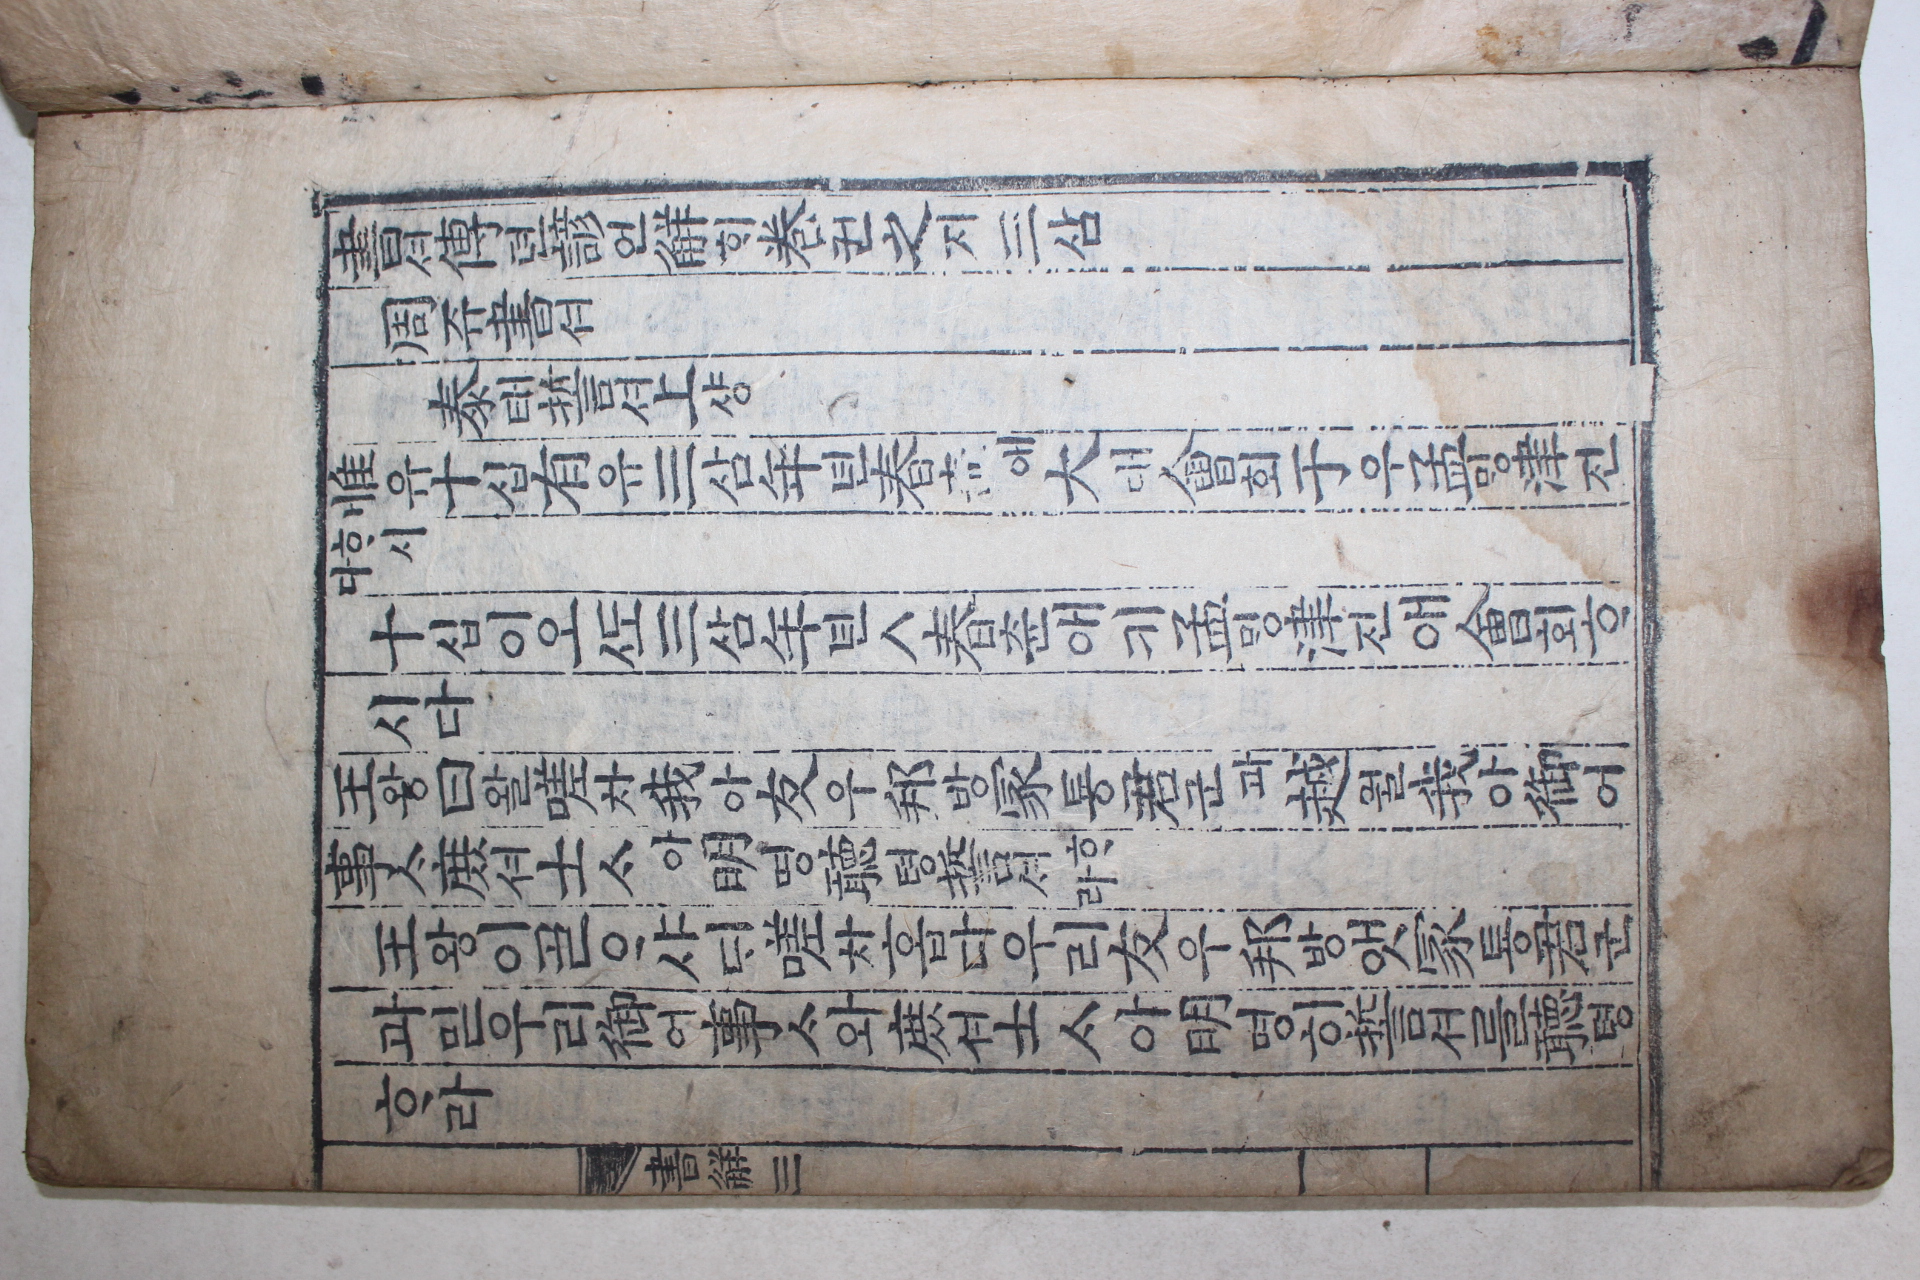 書셔傳젼諺언解ᄒᆡ卷권之지三삼
周쥬書셔
泰태誓셔上샹
惟유十십有유三삼年년春츈애大대會회于우孟ᄆᆡᆼ津진
ᄒᆞ시다
十십이오ᄯᅩ三삼年년ㅅ春츈애키孟ᄆᆡᆼ津진애會회ᄒᆞ
시다
王왕曰왈嗟차我아友우邦방冢튱君군과越월我아御어
事ᄉᆞ庶셔士ᄉᆞ아明명聽텽誓셔ᄒᆞ라
王왕이ᄀᆞᆯᄋᆞ샤ᄃᆡ嗟차홉다우리友우邦방앳冢튱君군
과믿우리御어事ᄉᆞ와庶셔士ᄉᆞ아明명히誓셔를聽텽
ᄒᆞ라
書解 三 一